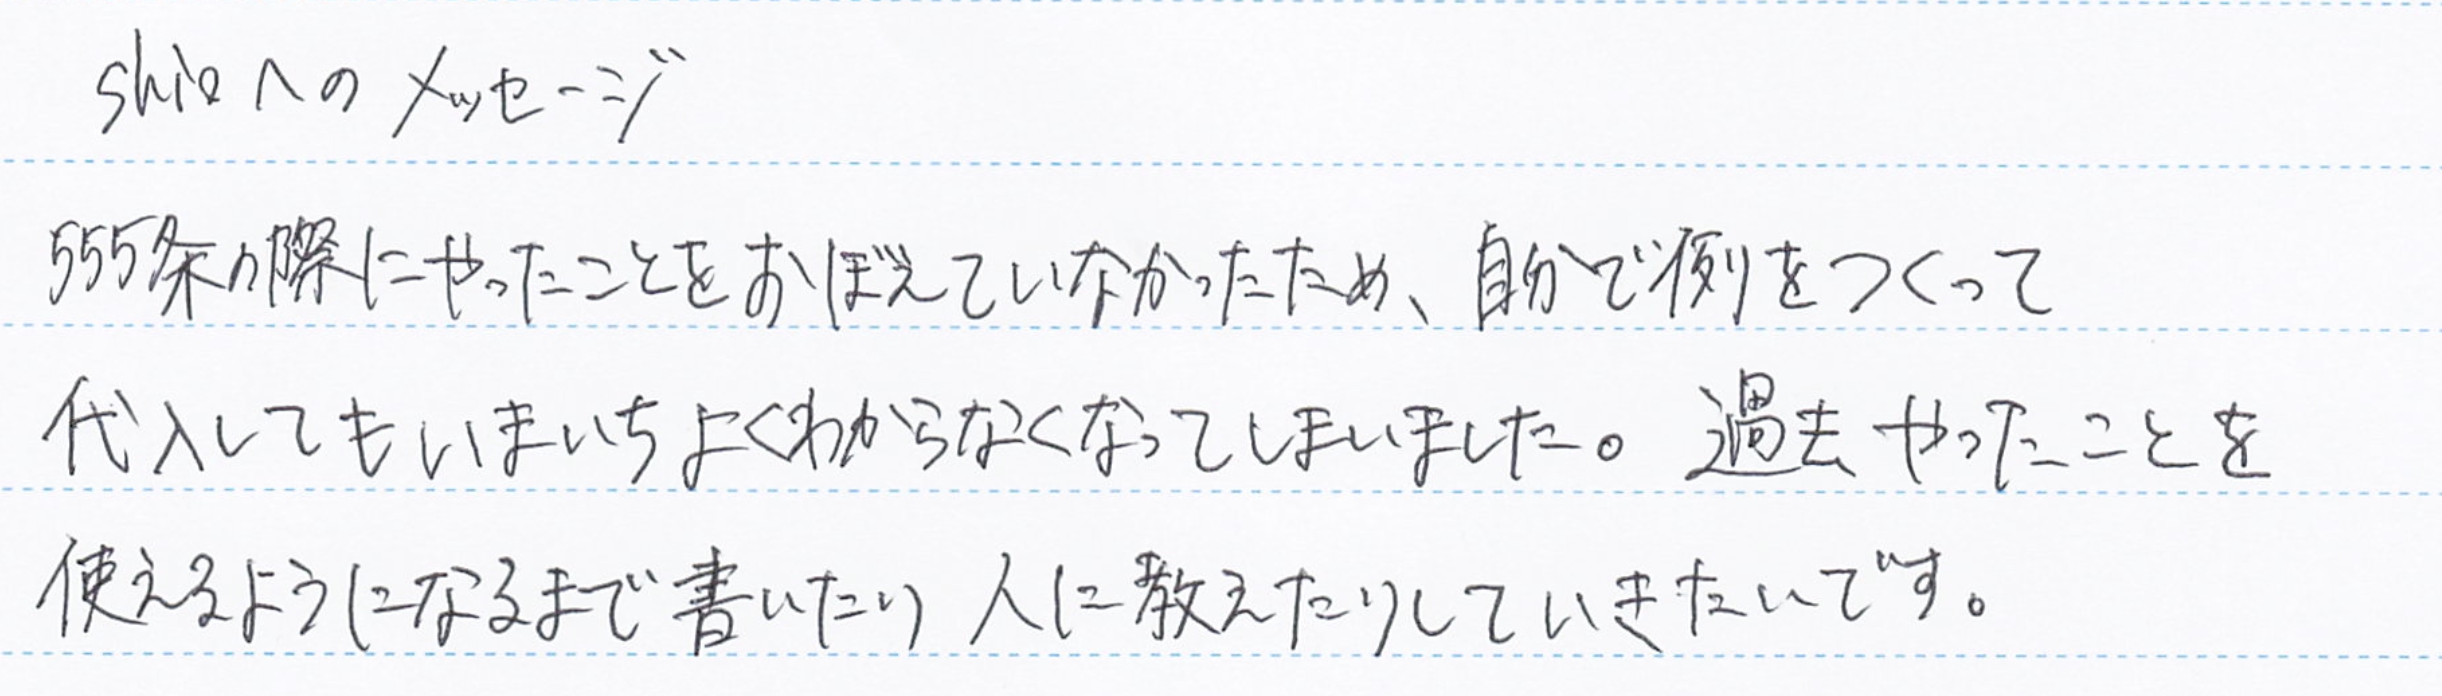 shioへのメッセージ
555条の際にやったことをおぼえていなかったため、自分で例をつくって
代入してもいまいちよくわからなくなってしまいました。過去やったことを
使えるようになるまで書いたり人に教えたりしていきたいです。